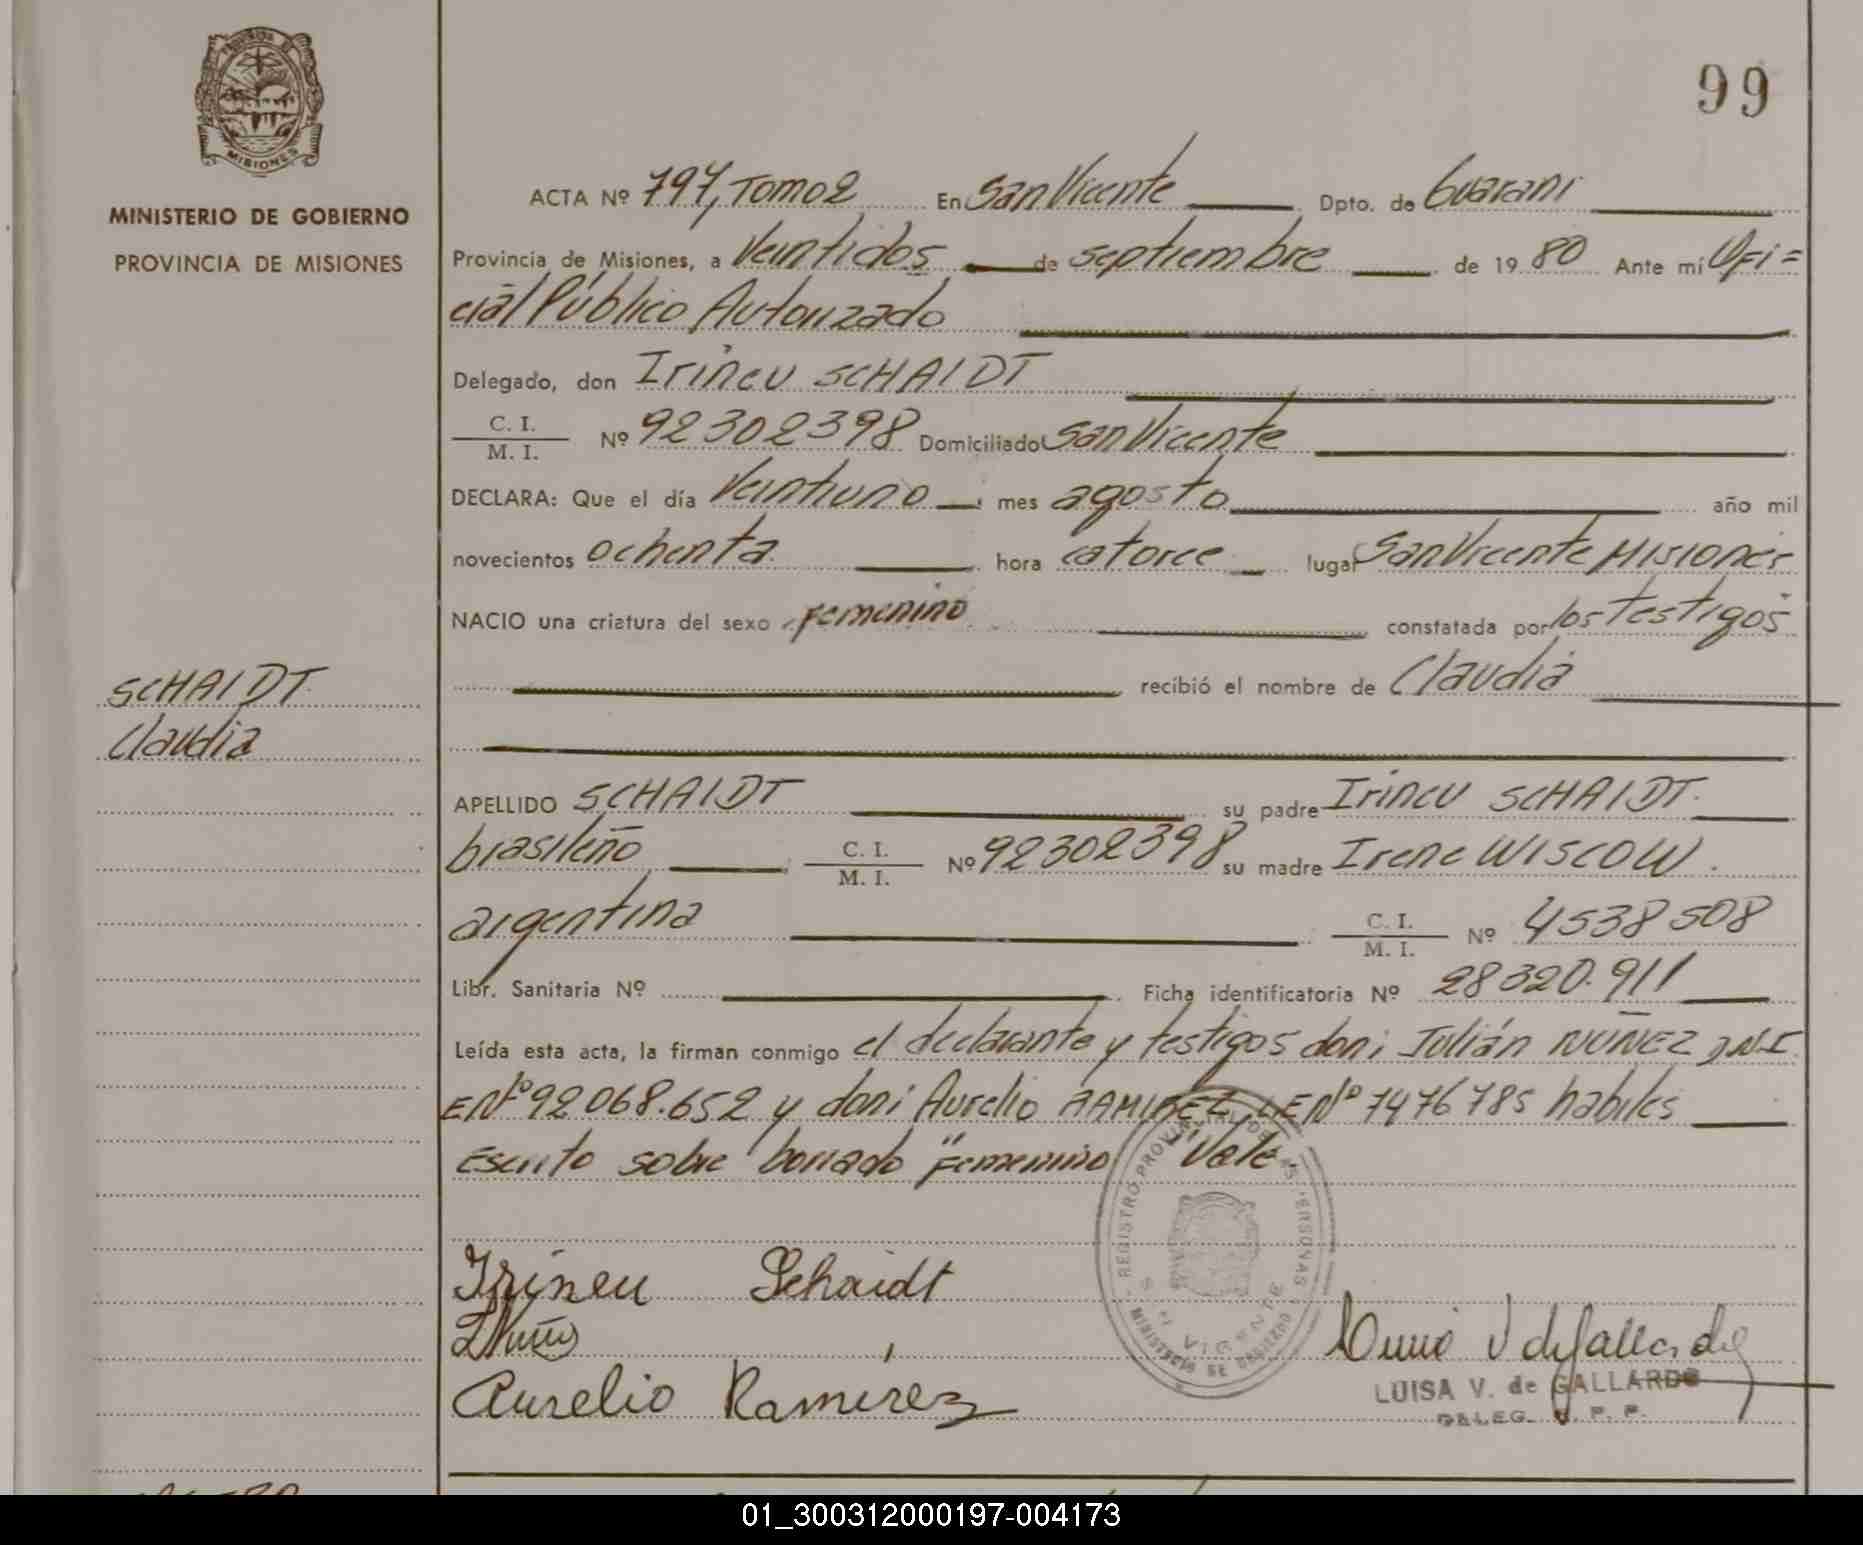 PROVINCIA DE
MISIONES
MINISTERIO DE GOBIERNO
PROVINCIA DE MISIONES
99
ACTA Nº 797, Tomo 2 En San Vicente Dpto. de Guaraní
Provincia de Misiones, a Veintidos de septiembre de 19 80 Ante mí Ofi=
cial Público Autorizado
Delegado, don Irineu SCHAIDT
C. I.
M. I. Nº 92302398 Domiciliado San Vicente
DECLARA: Que el día Veintiuno mes agosto año mil
novecientos ochenta hora catorce lugar San Vicente Misiones
NACIO una criatura del sexo Femenino constatada por los testigos
recibió el nombre de Claudia
SCHAIDT
Claudia
APELLIDO SCHAIDT su padre Irineu SCHAIDT.
brasileño C. I.
M. I. Nº 92302398 su madre Irene WISCOW.
argentina C. I.
M. I. Nº 4538508
Libr. Sanitaria Nº Ficha identificatoria Nº 28320.911
Leída esta acta, la firman conmigo el declarante y testigos don: Julián NUÑEZ D.N.I.
E Nº 92068.652 y don: Aurelio RAMIREZ, L E Nº 7476785 habiles
Escrito sobre borrado "Femenino" Vale.
REGISTRO PROVINCIAL DE LAS PERSONAS
MINISTERIO DE GOBIERNO
VICENTE
Irineu Schaidt
Aurelio Ramirez
LUISA V. de GALLARDO
DELEG. R. P. P.
01_300312000197-004173